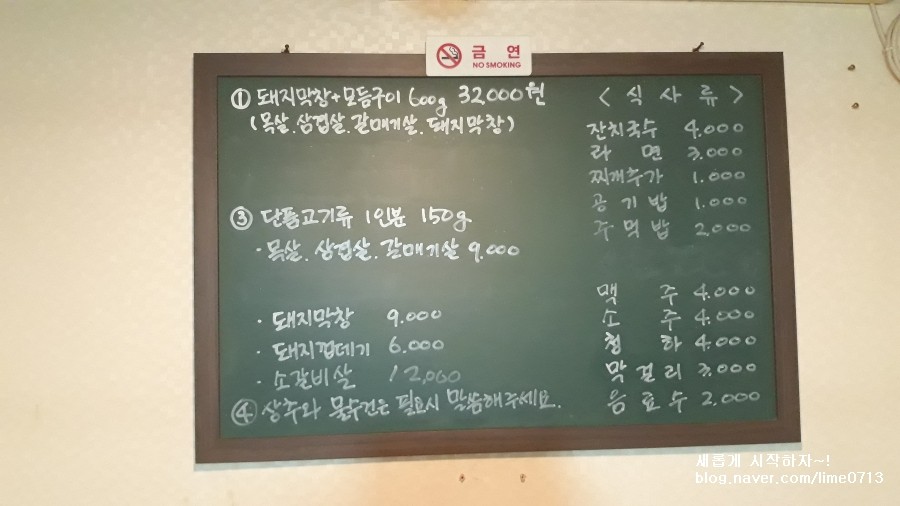 금 연
NO SMOKING
① 돼지막창+모듬구이 600g 32000원
(목살.삼겹살.갈매기살.돼지막창)
③ 단품고기류 1인분 150g
· 목살. 삼겹살. 갈매기살 9.000
· 돼지막창 9.000
· 돼지껍데기 6.000
· 소갈비살 12,000
④ 상추와 물수건은 필요시 말씀해주세요.
< 식 사 류 >
잔치국수 4.000
라 면 3.000
찌개추가 1.000
공 기 밥 1.000
주 먹 밥 2.000
맥 주 4.000
소 주 4.000
청 하 4.000
막 걸 리 3.000
음 료 수 2,000
새롭게 시작하자~!
blog.naver.com/lime0713